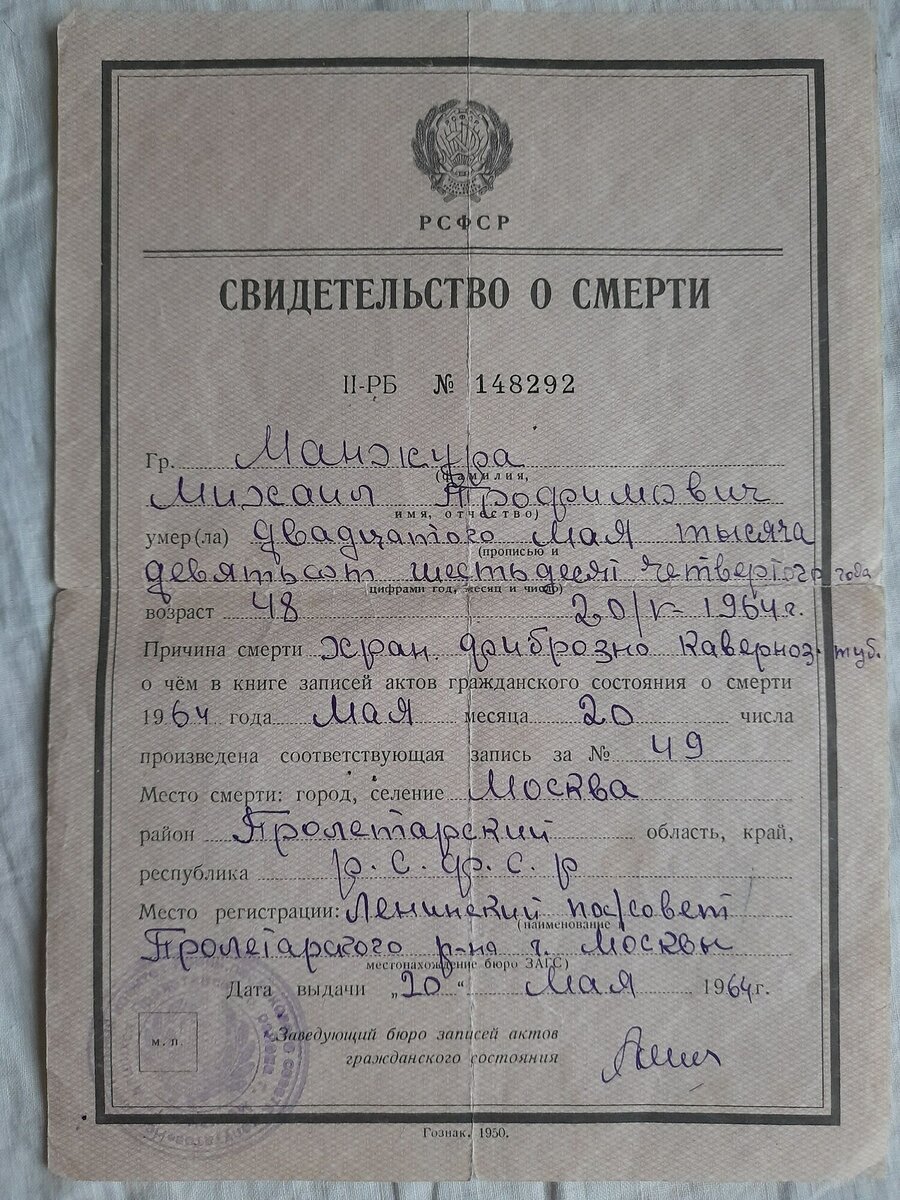 РСФСР
РСФСР
СВИДЕТЕЛЬСТВО О СМЕРТИ
II-РБ № 148292
Гр. Манжура
(фамилия,
Михаил Трофимович
имя, отчество)
умер(ла) двадцатого Мая тысяча
(прописью и
девятьсот шестьдесят четвертого года
цифрами год, месяц и число)
возраст 48 20/V- 1964 г.
Причина смерти хран. фиброзно Каверноз. туб.
о чём в книге записей актов гражданского состояния о смерти
1964 года Мая месяца 20 числа
произведена соответствующая запись за № 49
Место смерти: город, селение Москва
район Пролетарский область, край,
республика р. с. ф. с. р
Место регистрации: Ленинский пос/совет
(наименование и
Пролетарского р-на г. Москвы
местонахождение бюро ЗАГС)
Дата выдачи „20“ Мая 1964 г.
Заведующий бюро записей актов
м. п.
гражданского состояния
Гознак. 1950.